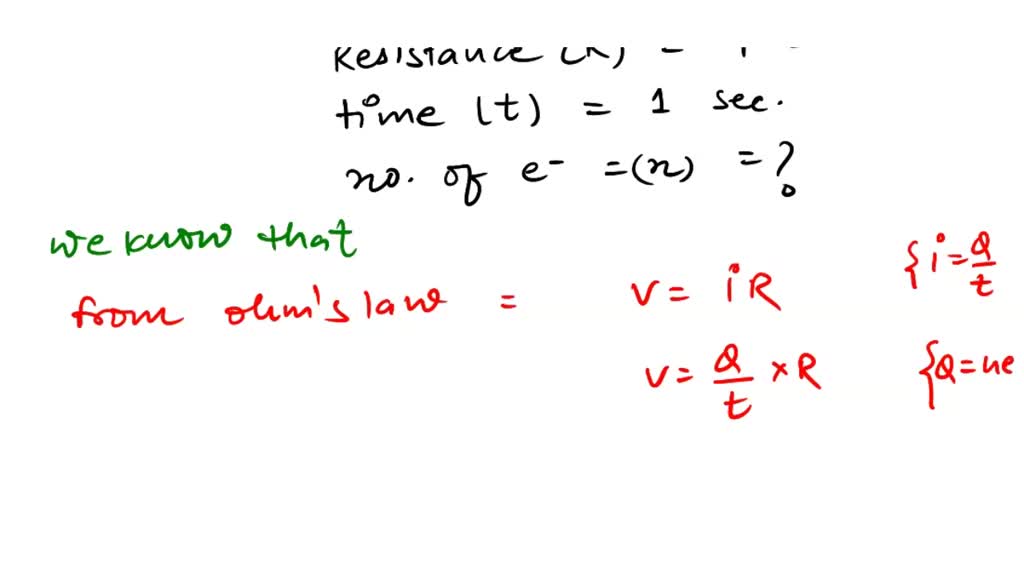 Resistance (R) =
time (t) = 1 sec.
no. of e- =(n) = ?
we know that
from ohm's law = V = iR {i = Q/t
V = Q/t × R {Q = ne